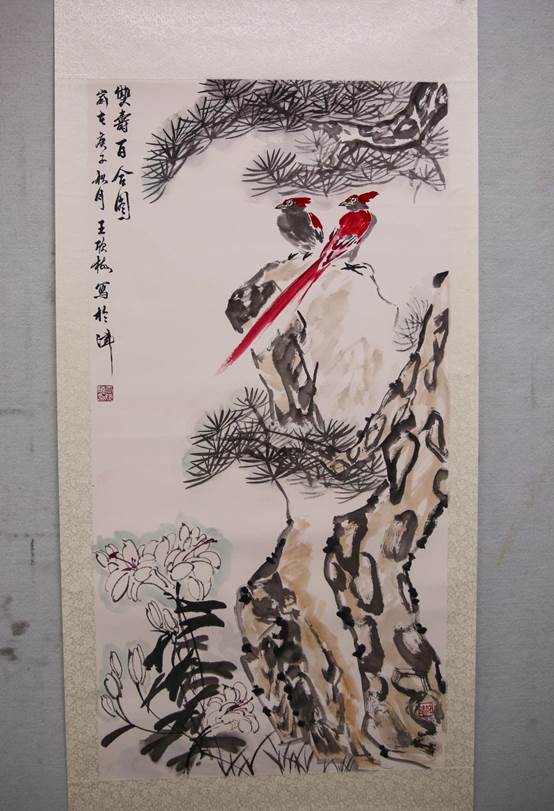 雙壽百合圖
歲在庚子秋月王欣梅寫於津